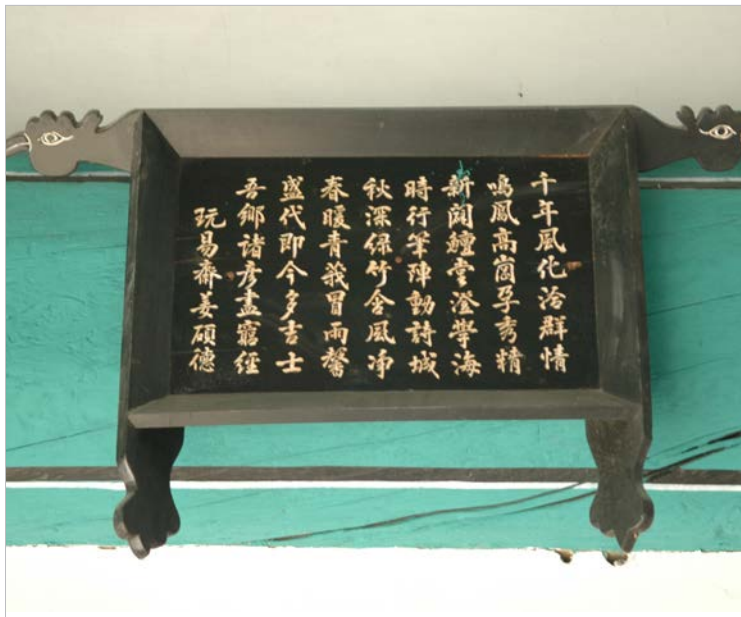 千年風化洽群情
鳴鳳高崗孕秀精
新闢鱣堂澄學海
時行筆陣動詩城
秋深綠竹含風净
春暖青莪冒雨馨
盛代即今多吉士
吾鄉諸彦盡窮經
玩易齋姜碩德